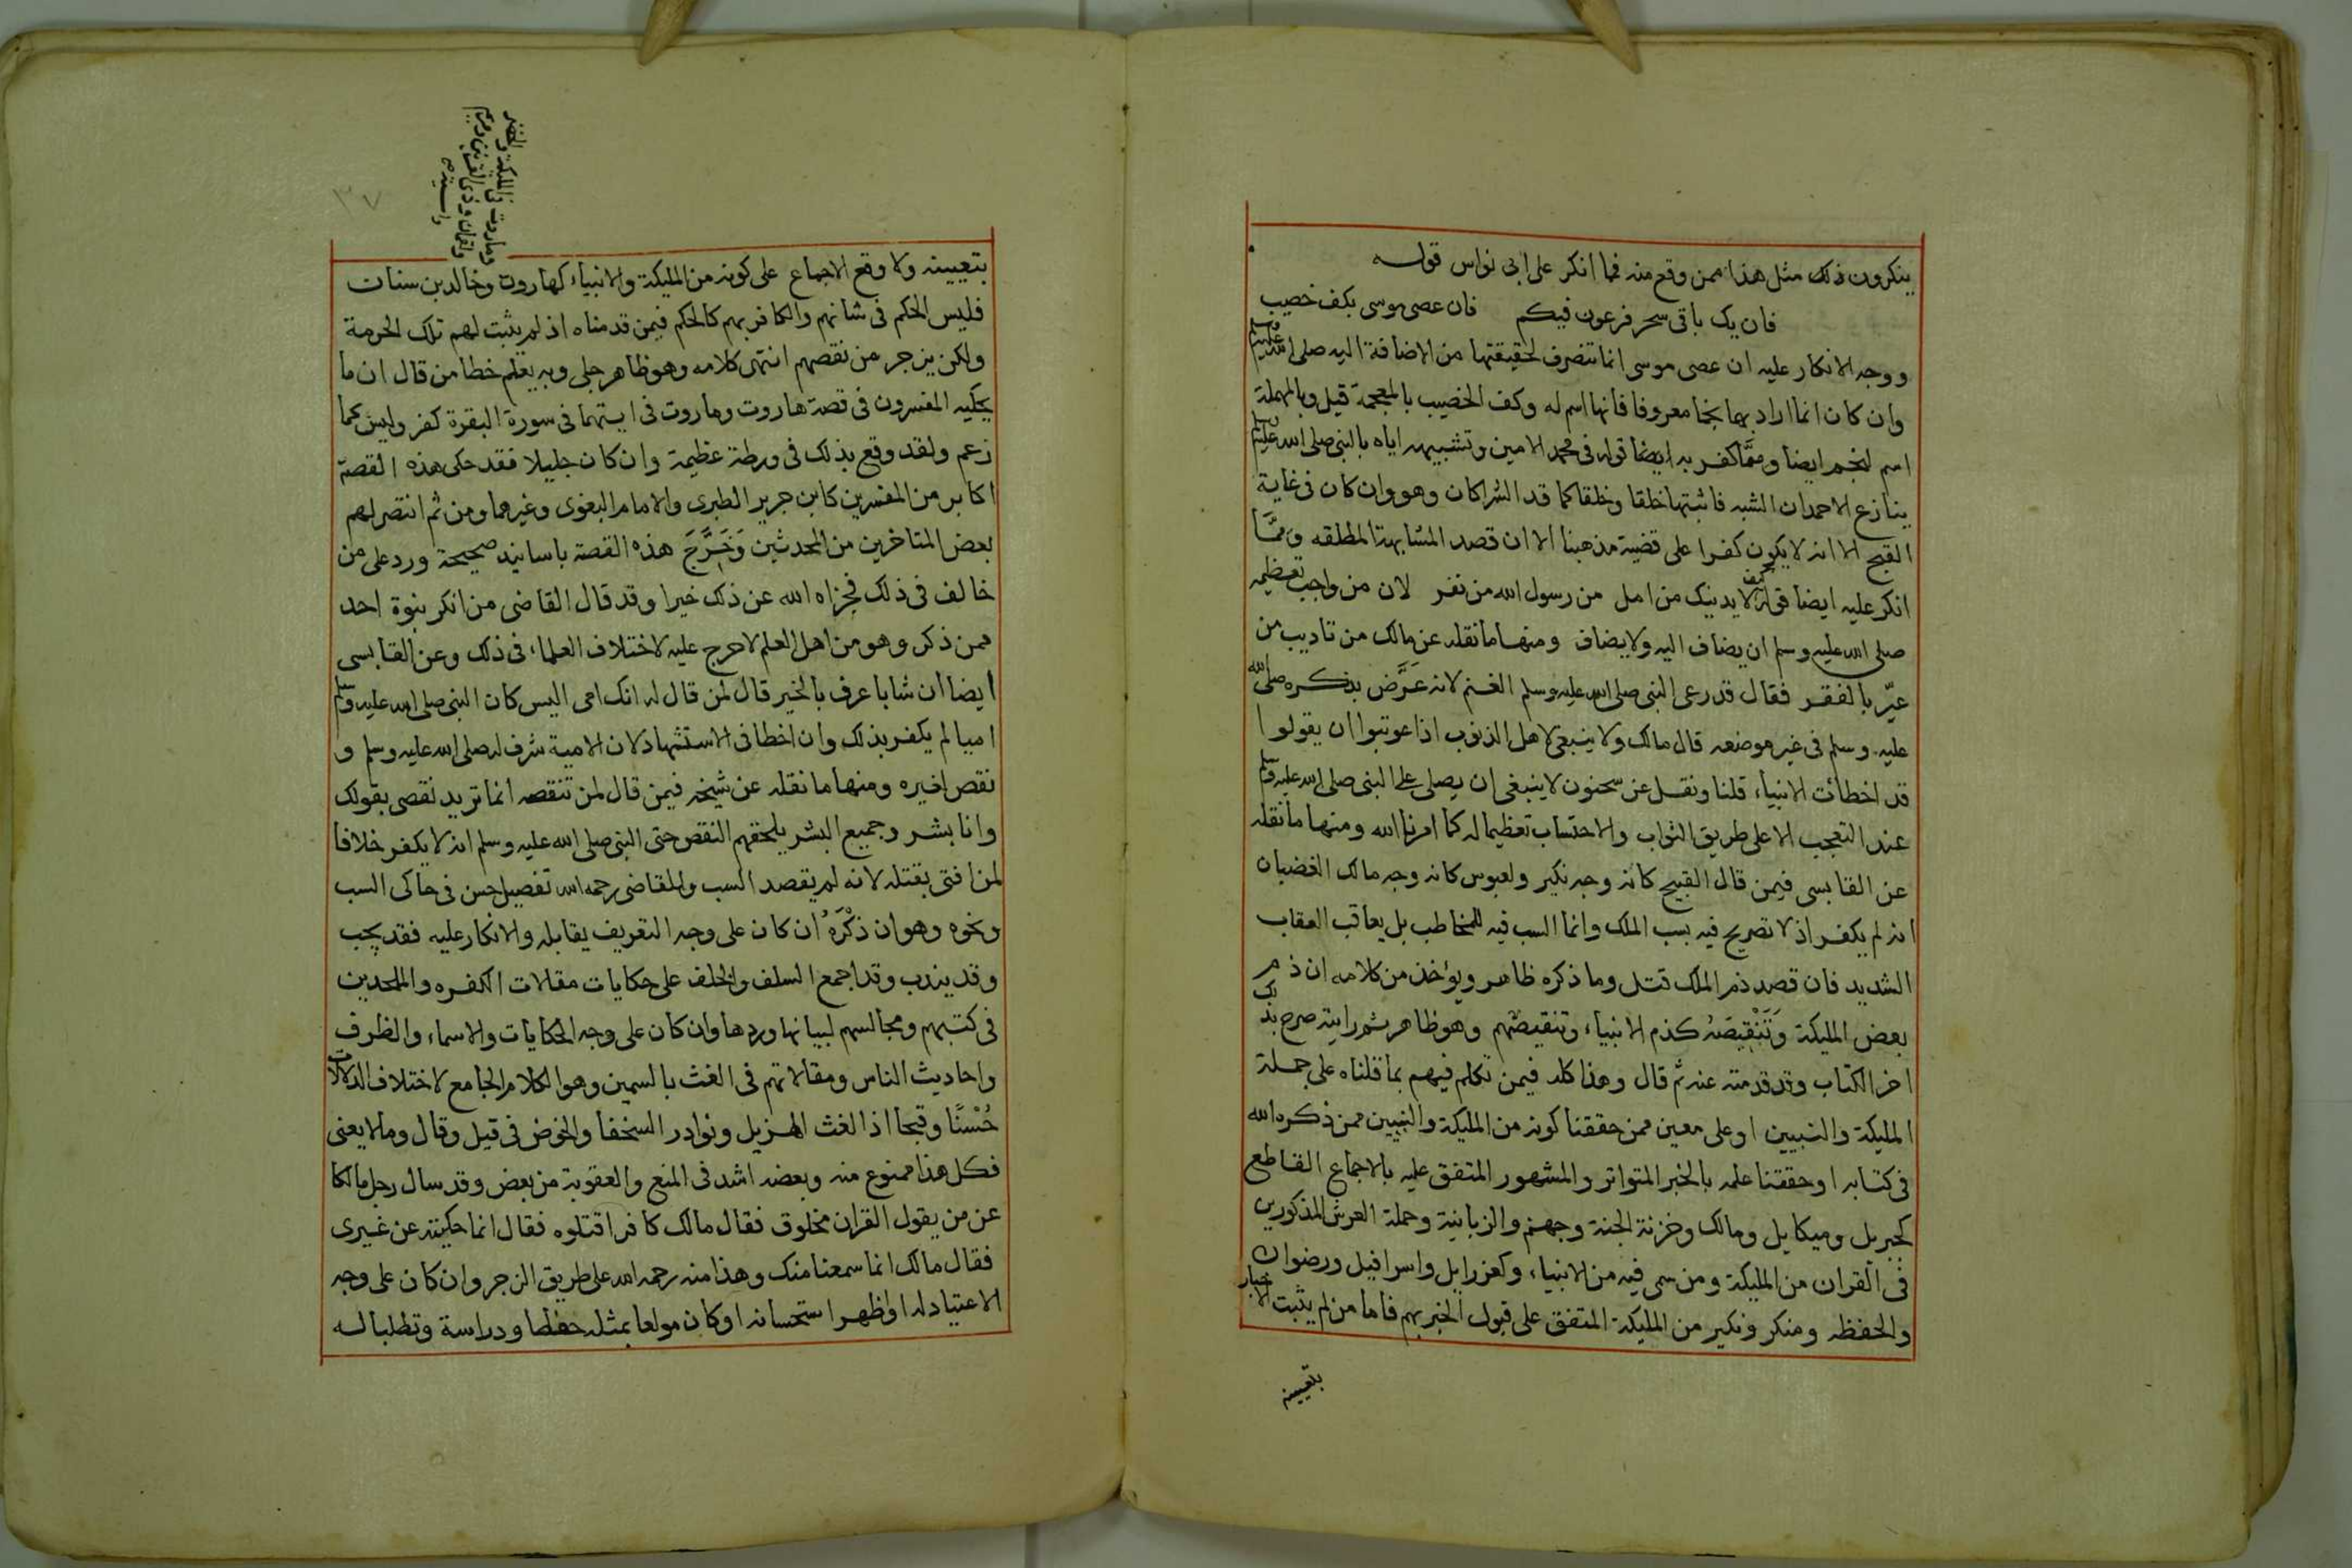 ينكرون ذلك مثل هذا ممن وقع منه فما انكر على ابى نواس قوله
فان يك باقى سحر فرعون فيكم فان عصى موسى بكف خصيب
ووجه الانكار عليه ان عصى موسى انما تنصرف لحقيقتها من الاضافة اليه صلى الله عليه وسلم
وان كان انما اراد بهما نجما معروفا فانها اسم له وكف الخضيب بالمعجمة قيل وبالمهملة
اسم لنجم ايضا وممَّا كفر به ايضا قوله فى محمد الامين وتشبيهه اياه بالنبى صلى الله عليه وسلم
ينازع الاحمدان الشبه فاشتبها خلقا وخلقا كما قد الشراكان وهو وان كان فى غاية
القبح الا انه لا يكون كفرا على قضية مذهبنا الا ان قصد المشابهة المطلقه وممَّا
انكر عليه ايضا قوله كيف لا يدنيك من امل من رسول الله من نفر لان من واجب تعظيمه
صلى الله عليه وسلم ان يضاف اليه ولا يضاف ومنها ما نقله عن مالك من تاديب من
عيّر بالفقر فقال قد رعى النبى صلى الله عليه وسلم الغنم لانه عَرَّض بذكره صلى الله
عليه وسلم فى غير موضعه قال مالك ولا ينبغى لاهل الذنوب اذا عوتبوا ان يقولوا
قد اخطأت الانبياء قلنا ونقل عن سحنون لا ينبغى ان يصلى على النبى صلى الله عليه وسلم
عند التعجب الا على طريق الثواب والاحتساب تعظيما له كما امرنا الله ومنها ما نقله
عن القابسى فيمن قال القبيح كانه وجه نكير ولعبوس كانه وجه مالك الغضبان
انه لم يكفر اذ لا تصريح فيه بسب الملك وانما السب فيه للمخاطب بل يعاقب العقاب
الشديد فان قصد ذم الملك قتل وما ذكره ظاهر ويؤخذ من كلامه ان ذم
بعض المليكة وَتَنْقِيصَهُ كذم الانبياء وتنقيصهم وهو ظاهر ثم رايته صرح بذلك
اخر الكتاب وقد قدمته عنه ثم قال وهذا كله فيمن تكلم فيهم بما قلناه على جملة
المليكة والنبيين او على معين ممن حققنا كونه من المليكة والنبيين ممن ذكره الله
فى كتابه او حققنا علمه بالخبر المتواتر والمشهور المتفق عليه بالاجماع القاطع
كجبريل وميكايل ومالك وخزنة الجنة وجهنم والزبانية وحملة العرش المذكورين
فى القران من المليكة ومن سمى فيه من الانبياء وكعزرايل واسرافيل ورضوان
والحفظه ومنكر ونكير من المليكة المتفق على قبول الخبر بهم فاما من لم يثبت الاخبار
بتعيينه
وماروت فى المليكة والخضر
ولقمان وذى القرنين ومريم
واسية صح
٣٧
بتعيينه ولا وقع الاجماع على كونه من المليكة والانبياء كهاروت وخالد بن سنان
فليس الحكم فى شانهم والكافر بهم كالحكم فيمن قدمناه اذ لم يثبت لهم تلك الحرمة
ولكن يزجر من نقصهم انتهى كلامه وهو ظاهر جلى وبه يعلم خطا من قال ان ما
يحكيه المفسرون فى قصة هاروت وماروت فى ايتهما فى سورة البقرة كفر وليس كما
زعم ولقد وقع بذلك فى ورطة عظيمة وان كان جليلا فقد حكى هذه القصة
اكابر من المفسرين كابن جرير الطبرى والامام البغوى وغيرهما ومن ثم انتصر لهم
بعض المتاخرين من المحدثين وَخَرَّجَ هذه القصة باسانيد صحيحة ورد على من
خالف فى ذلك فجزاه الله عن ذلك خيرا وقد قال القاضى من انكر بنوة احد
ممن ذكر وهو من اهل العلم لا حرج عليه لاختلاف العلماء فى ذلك وعن القابسى
ايضا ان شابا عرف بالخير قال لمن قال له انك امى اليس كان النبى صلى الله عليه وسلم
اميا لم يكفر بذلك وان اخطا فى الاستشهاد لان الامية شرف له صلى الله عليه وسلم و
نقص لغيره ومنها ما نقله عن شيخه فيمن قال لمن تنقصه انما تريد نقصى بقولك
وانا بشر وجميع البشر يلحقهم النقص حتى النبى صلى الله عليه وسلم انه لا يكفر خلافا
لمن افتى بقتله لانه لم يقصد السب وللقاضى رحمه الله تفصيل حسن فى حاكى السب
ونحوه وهو ان ذكْرَهُ ان كان على وجه التعريف يقابله والانكار عليه فقد يجب
وقد يندب وقد اجمع السلف والخلف على حكايات مقالات الكفره والملحدين
فى كتبهم ومجالسهم لبيانها وردها وان كان على وجه الحكايات والاسماء والظرف
واحاديث الناس ومقالاتهم فى الغث بالسمين وهو الكلام الجامع لاختلاف الدلالات
حُسْنًا وقبحا اذ الغث الهزيل ونوادر السخفا والخوض فى قيل وقال وما لا يعنى
فكل هذا ممنوع منه وبعضه اشد فى المنع والعقوبة من بعض وقد سال رجل مالكا
عن من يقول القران مخلوق فقال مالك كافر اقتلوه فقال انما حكيته عن غيرى
فقال مالك انما سمعنا منك وهذا منه رحمه الله على طريق الزجر وان كان على وجه
الاعتياد له او اظهر استحسانه او كان مولعا بمثله حفظا ودراسة وتطلبا له